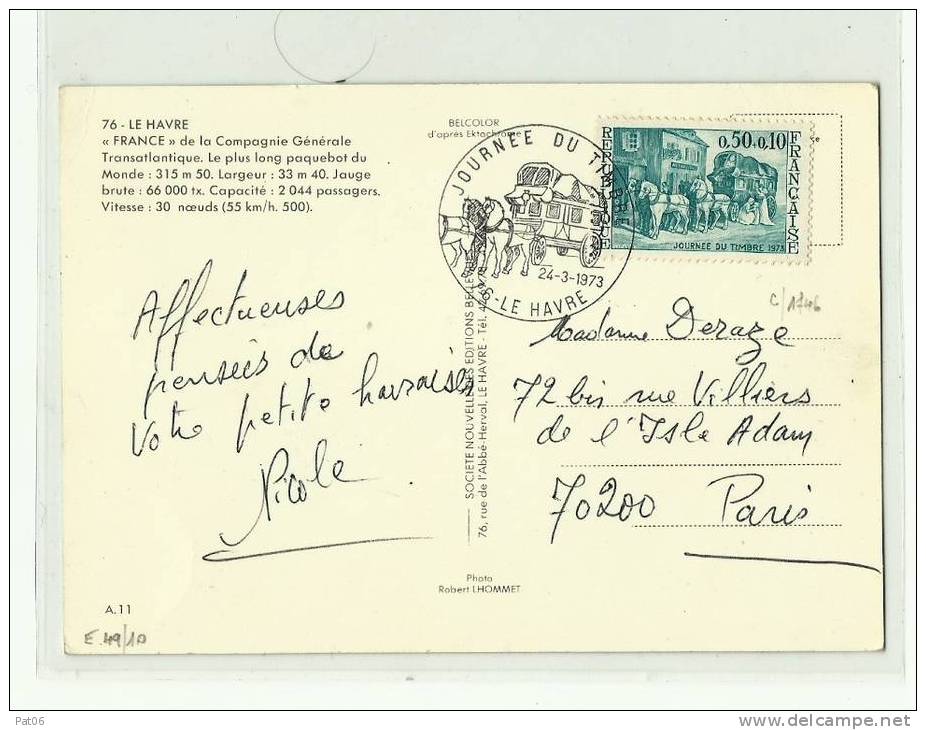 76 - LE HAVRE
« FRANCE » de la Compagnie Générale
Transatlantique. Le plus long paquebot du
Monde : 315 m 50. Largeur : 33 m 40. Jauge
brute : 66 000 tx. Capacité : 2 044 passagers.
Vitesse : 30 nœuds (55 km/h. 500).
BELCOLOR
d'après Ektachrome
JOURNÉE DU TIMBRE
24-3-1973
LE HAVRE
REPUBLIQUE
FRANÇAISE
0,50+0,10
JOURNÉE DU TIMBRE 1973
C/1746
Affectueuses
pensées de
Votre petite havraise
Nicole
SOCIETE NOUVELLE DES EDITIONS
76, rue de l'Abbé-Herval, LE HAVRE - Tél.
Madame Deraze
72 bis rue Villiers
de l'Isle Adam
70200 Paris
Photo
Robert LHOMMET
A.11
E 49/10
Pat06
www.delcampe.net